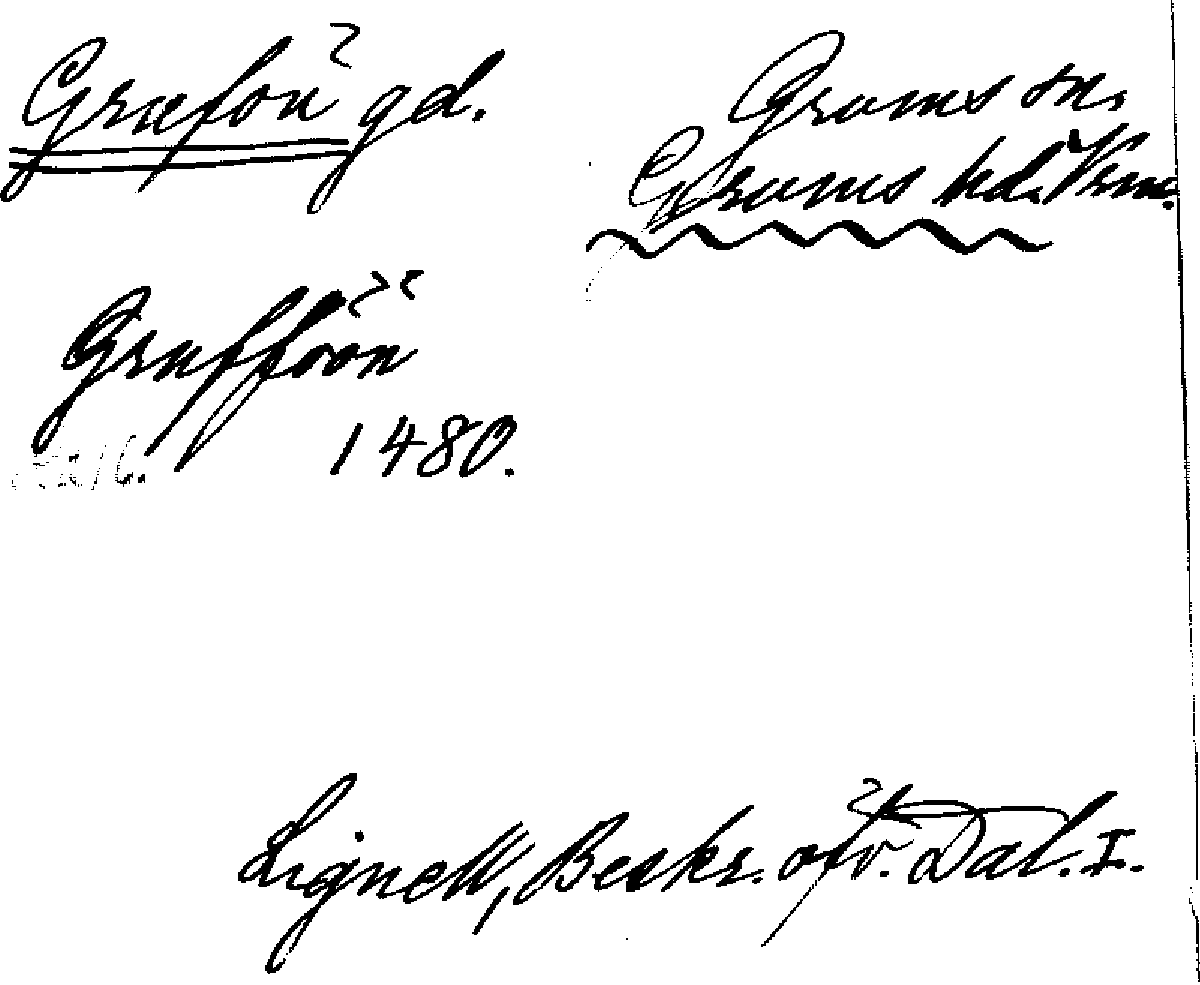 Grafön gd.
Grums sn.
Grums hd. Vrm.
Grafföön
1480.
Lignell, Beskr. öfv. Dal. I.